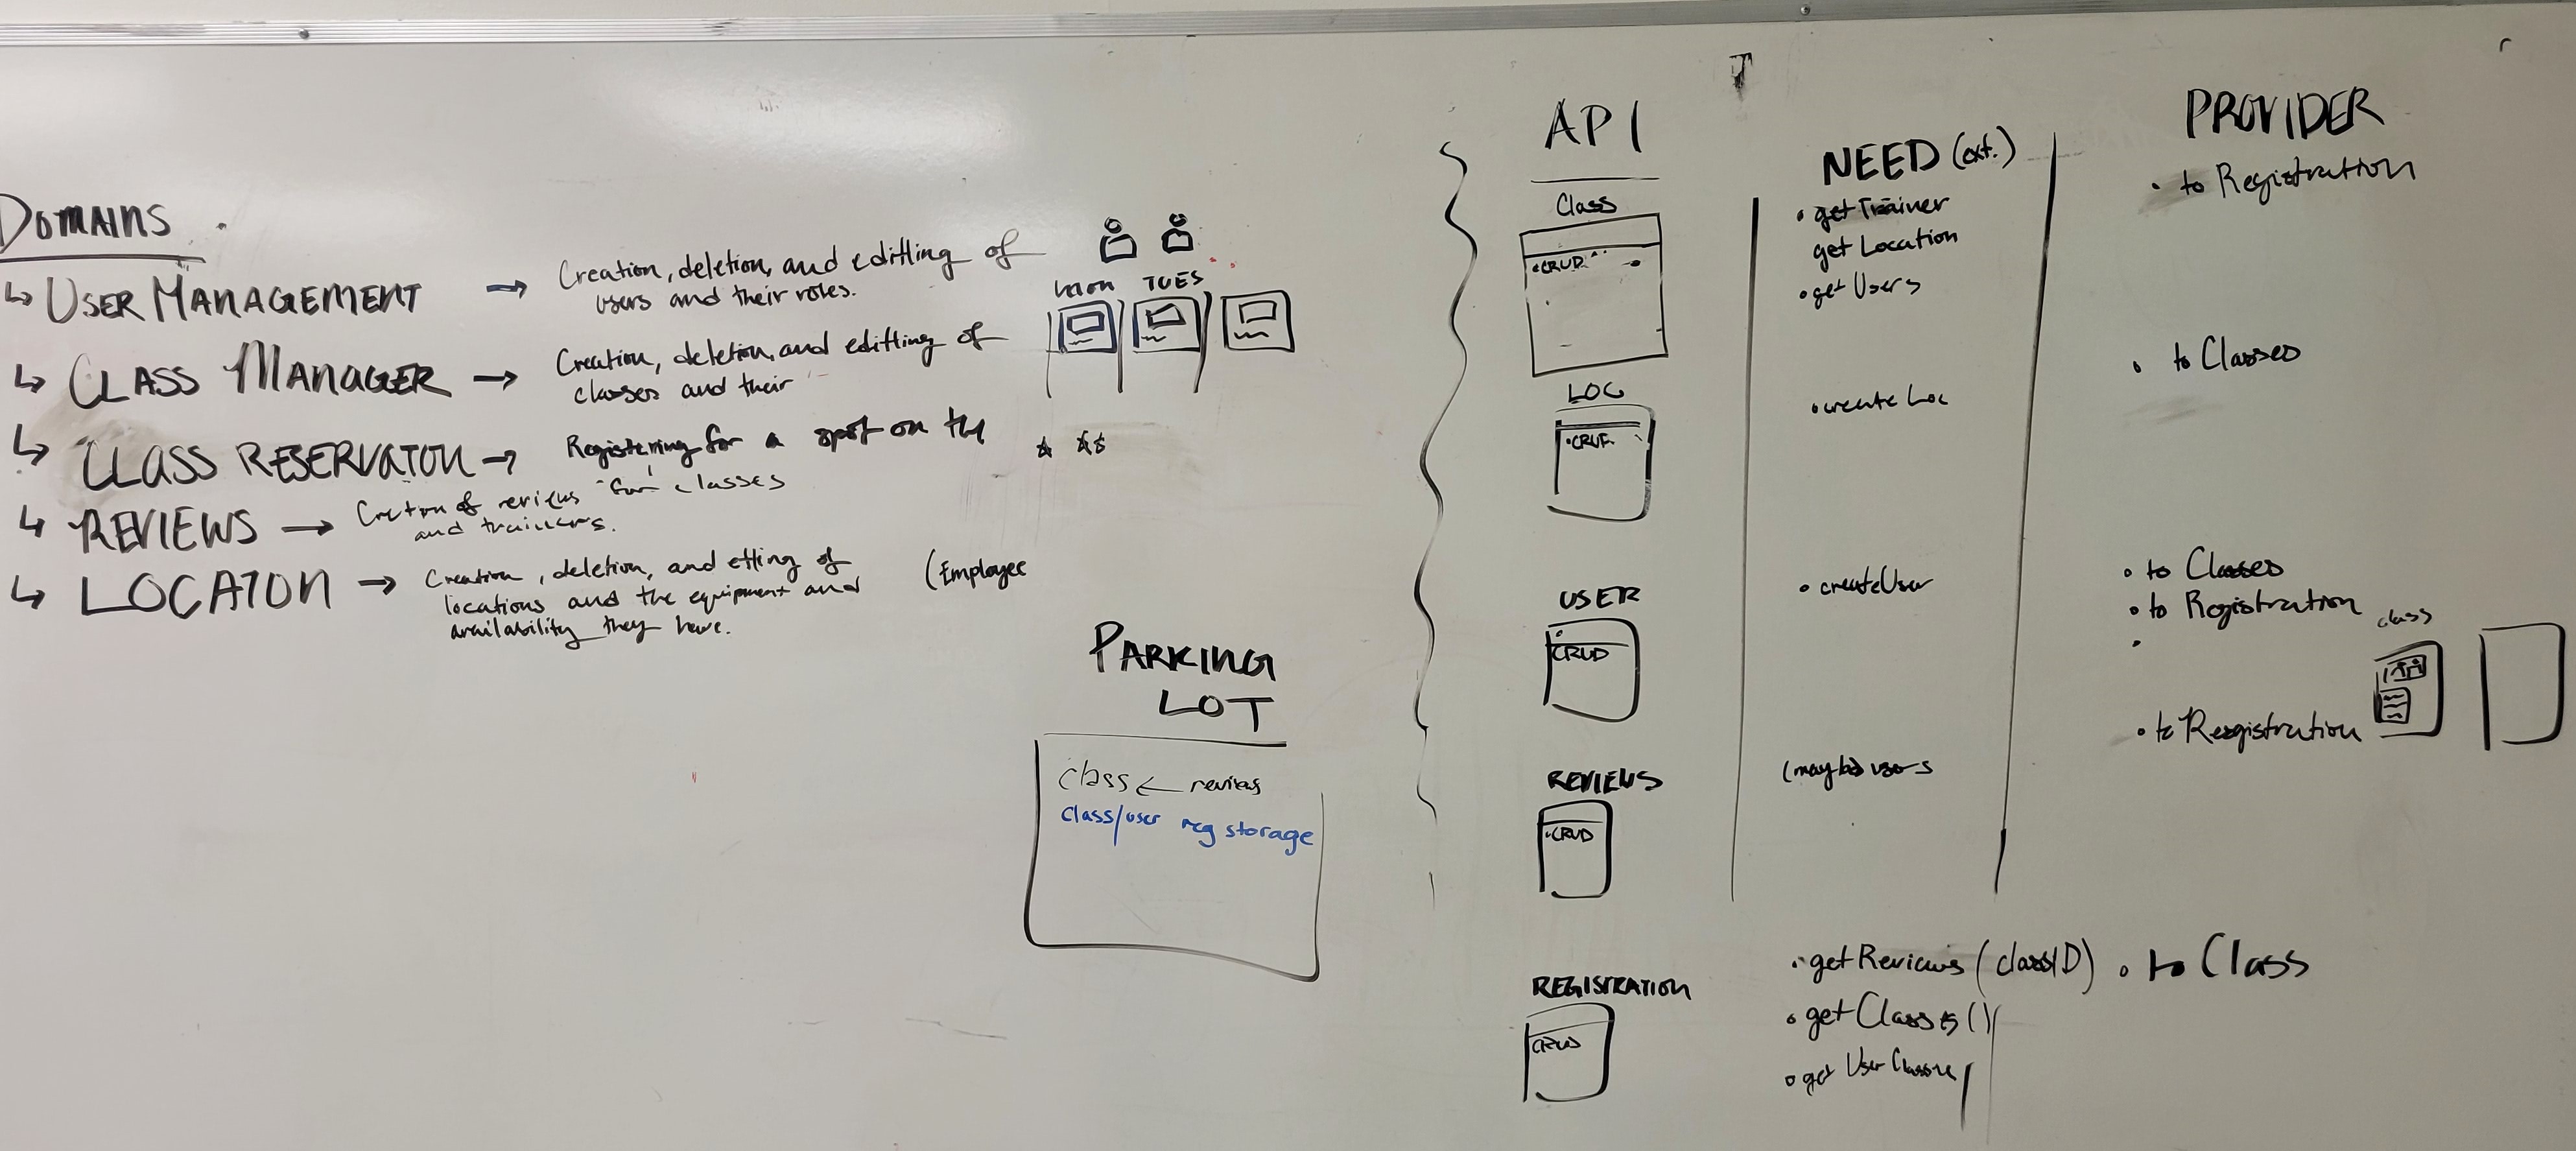 DOMAINS
↳ USER MANAGEMENT → Creation, deletion, and editting of
users and their roles.
↳ CLASS MANAGER → Creation, deletion, and editting of
classes and their
↳ CLASS RESERVATON → Registering for a spot on the
↳ REVIEWS → Creation of reviews for classes
and trainers.
↳ LOCATON → Creation, deletion, and etting of
locations and the equipment and
availability they have.
(Employee
MON TUES
PARKING
LOT
class ← reviews
class/user reg storage
API
Class
• CRUD
LOC
• CRUD
USER
CRUD
REVIEWS
• CRUD
REGISTRATION
CRUD
NEED (ext.)
• get Trainer
get Location
• get Users
• create Loc
• createUser
(maybe) users
• getReviews (classID)
• getClasses ()
• get User Classes
PROVIDER
• to Registration
• to Classes
• to Classes
• to Registration
•
class
• to Reegistration
• to Class